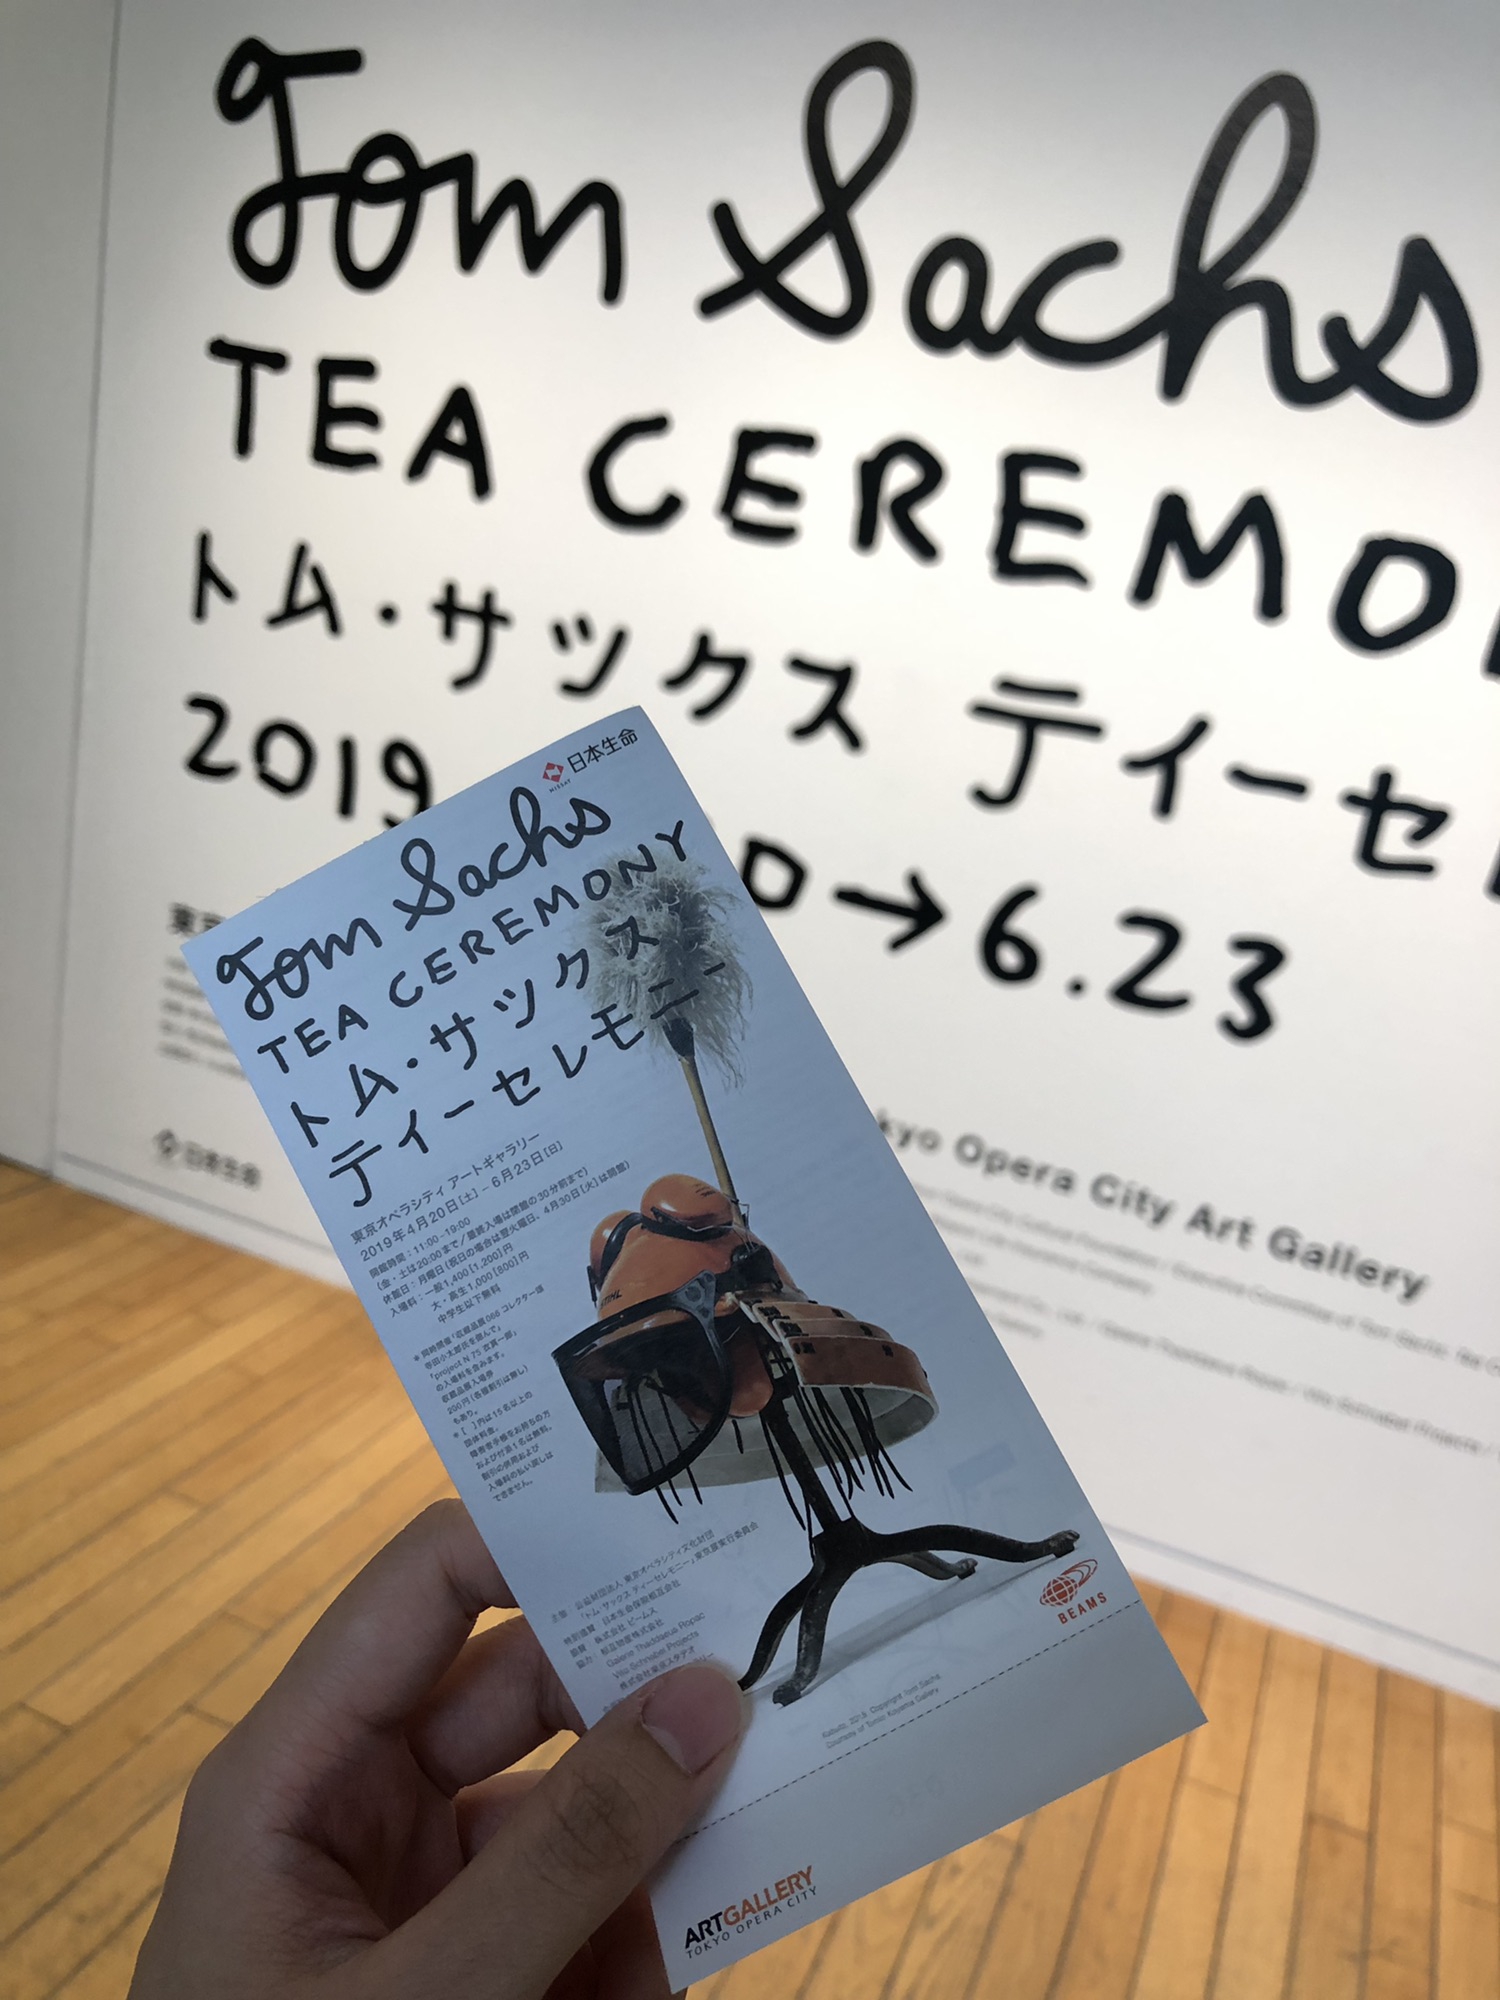 Tom Sachs
TEA CEREMO
トム・サックス ティーセ
2019
→6.23
日本生命
kyo Opera City Art Gallery
日本生命
NISSAY
Tom Sachs
TEA CEREMONY
トム・サックス
ティーセレモニー
東京オペラシティ アートギャラリー
2019年4月20日[土] – 6月23日[日]
開館時間:11:00–19:00
(金・土は20:00まで/最終入場は閉館の30分前まで)
休館日:月曜日(祝日の場合は翌火曜日、4月30日[火]は開館)
入場料:一般1,400[1,200]円
大・高生1,000[800]円
中学生以下無料
*同時開催「収蔵品展066 コレクター魂
寺田小太郎氏を偲んで」
「project N 75 衣真一郎」
の入場料を含みます。
収蔵品展入場券
200円(各種割引は無し)
もあり。
*[ ]内は15名以上の
団体料金。
障害者手帳をお持ちの方
および付添1名は無料。
割引の併用および
入場料の払い戻しは
できません。
STIHL
主催:公益財団法人 東京オペラシティ文化財団
「トム・サックス ティーセレモニー」東京展実行委員会
特別協賛:日本生命保険相互会社
協賛:株式会社 ビームス
協力:相互物産株式会社
Galerie Thaddaeus Ropac
Vito Schnabel Projects
株式会社東京スタデオ
BEAMS
Kabuto, 2015, Copyright Tom Sachs.
Courtesy of Tomio Koyama Gallery
ARTGALLERY
TOKYO OPERA CITY